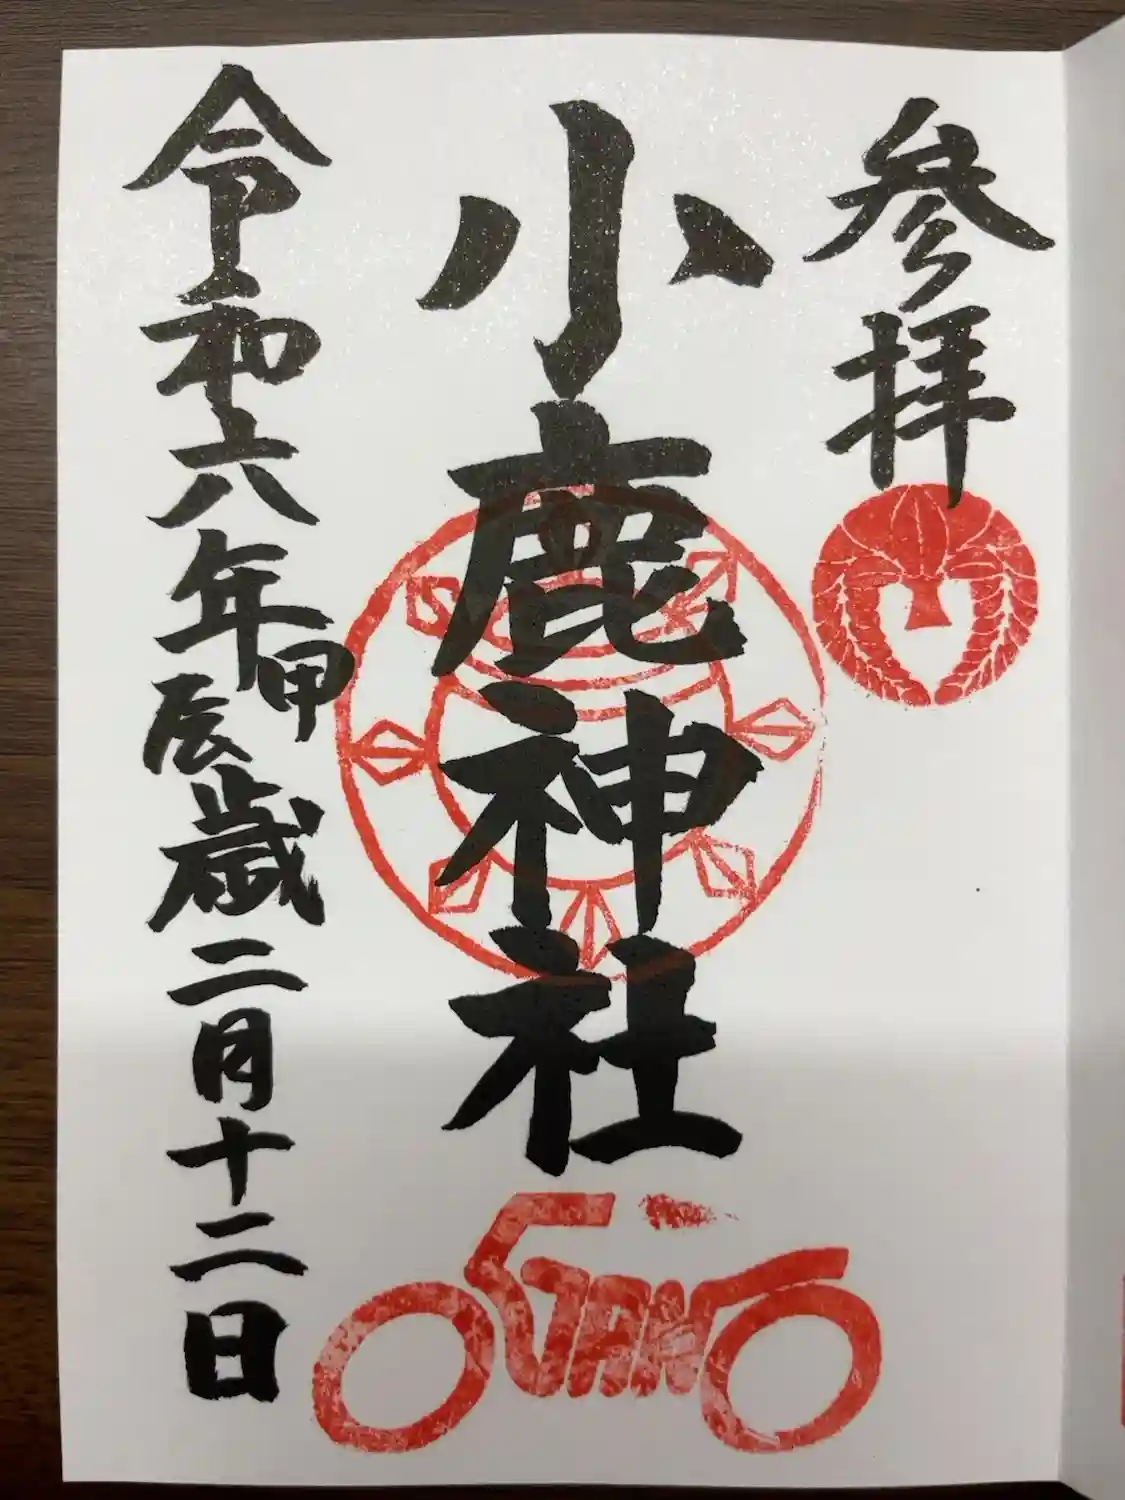 参拝
小鹿神社
令和六年甲辰歳二月十二日